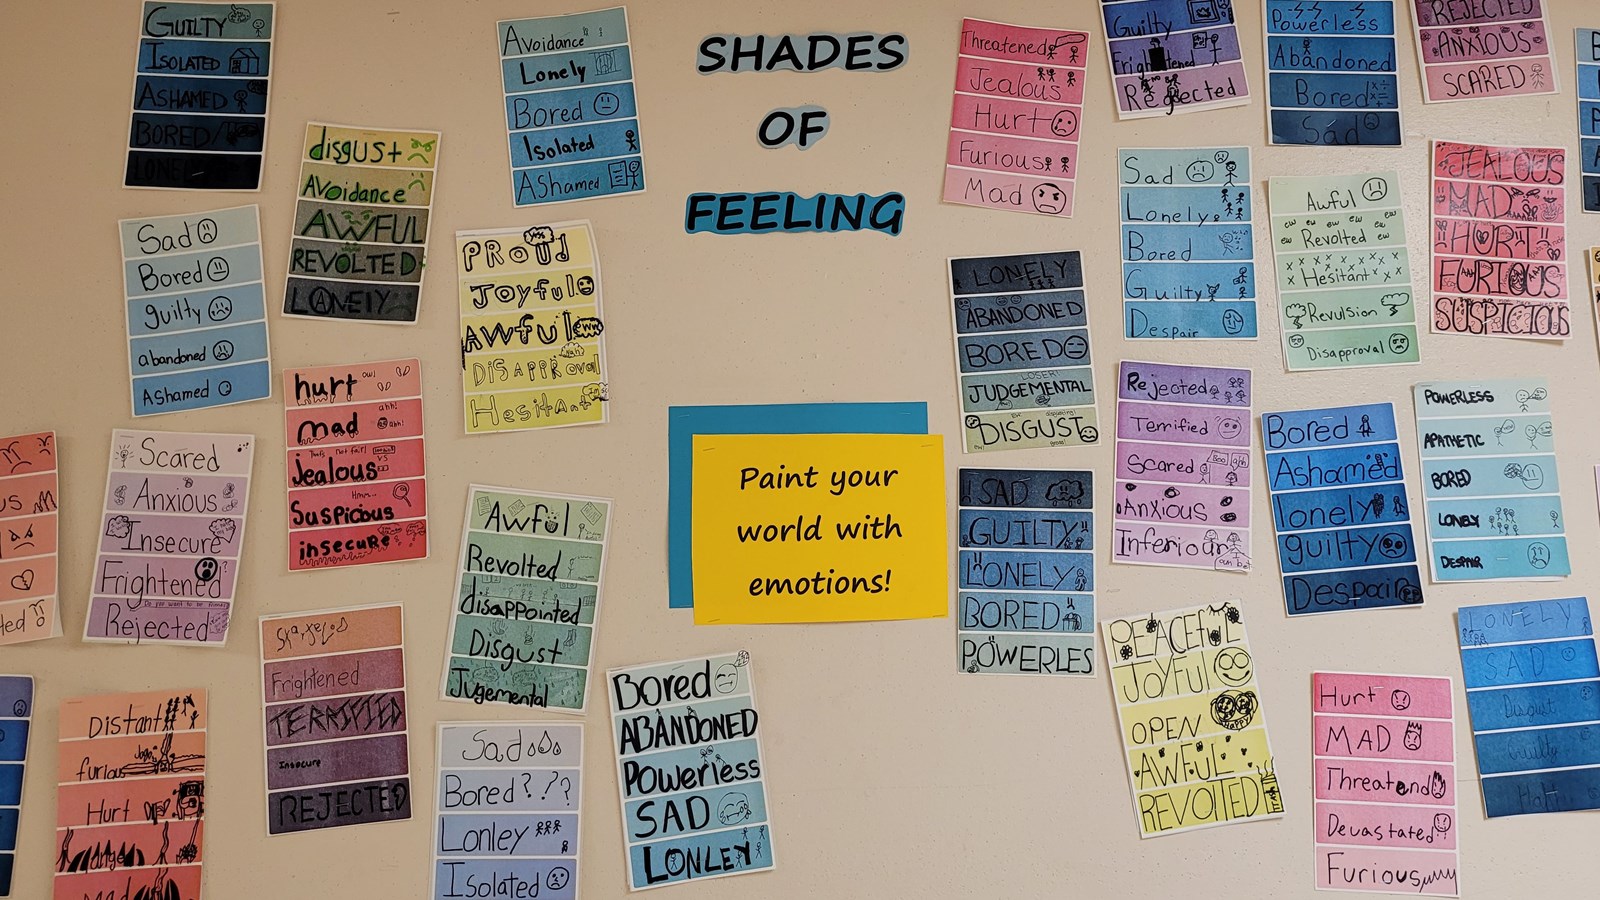 SHADES
OF
FEELING
Paint your
world with
emotions!
GUILTY
ISOLATED
ASHAMED
BORED
LONELY
Sad
Bored
guilty
abandoned
Ashamed
disgust
Avoidance
AWFUL
REVOLTED
LONELY
Avoidance
Lonely
Bored
Isolated
Ashamed
PROUD
Joyful
AWFUL
DISAPPROVAL
Hesitant
hurt
ow!
mad
ahh!
ahh!
jealous
that's not fair!
Suspicious
Hmm...
insecure
Scared
Anxious
Insecure
Frightened
?
Do you want to be friends
Rejected
Awful
Revolted
disappointed
Disgust
Jugemental
Frightened
TERRIFIED
Insecure
REJECTED
Distant
furious
Hurt
Mad
Sad
Bored???
Lonley
Isolated
Bored
ABANDONED
Powerless
SAD
LONLEY
Threatened
Jealous
Hurt
Furious
Mad
Guilty
Frightened
Rejected
Powerless
Abandoned
Bored
Sad
REJECTED
ANXIOUS
SCARED
LONELY
ABANDONED
BORED
LOSER!
JUDGEMENTAL
DISGUST
Sad
Lonely
Bored
Guilty
Despair
Awful
ew ew ew ew
ew Revolted ew
Hesitant
Revulsion
Disapproval
JEALOUS
MAD
HURT
FURIOUS
SUSPICIOUS
SAD
GUILTY
LONELY
BORED
POWERLES
Rejected
Terrified
Scared
Anxious
Inferiour
Bored
Ashamed
lonely
guilty
Despair
POWERLESS
APATHETIC
BORED
LONELY
DESPAIR
PEACEFUL
JOYFUL
OPEN
HAPPY
AWFUL
REVOLTED
Hurt
MAD
Threatend
Devastated
Furious
LONELY
SAD
Disgust
Guilty